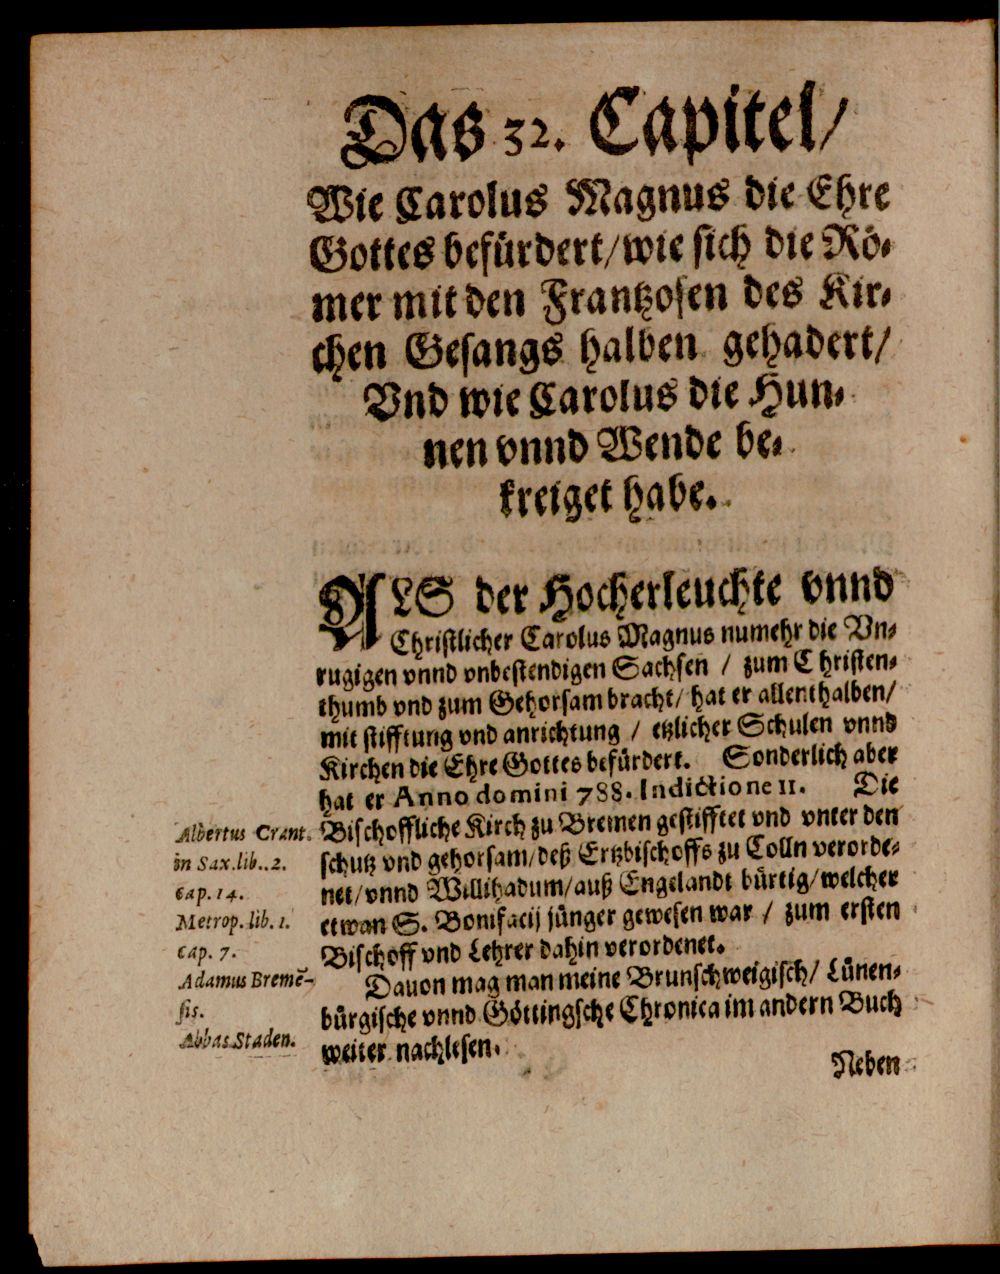 Das 32. Capitel/
Wie Carolus Magnus die Ehre
Gottes befürdert/wie sich die Rö-
mer mit den Frantzosen des Kir-
chen Gesangs halben gehadert/
Vnd wie Carolus die Hun-
nen vnnd Wende be-
kreiget habe.
ALS der Hocherleuchte vnnd
Christlicher Carolus Magnus numehr die Vn-
rugigen vnnd vnbestendigen Sachsen / zum Christen-
thumb vnd zum Gehorsam bracht/ hat er allenthalben/
mit stifftung vnd anrichtung / etzlicher Schulen vnnd
Kirchen die Ehre Gottes befürdert. Sonderlich aber
hat er Anno domini 788. Indictione 11. Die
Bischoffliche Kirch zu Bremen gestifftet vnd vnter den
schutz vnd gehorsam/deß Ertzbischoffs zu Colln verorde-
net/vnnd Willihadum/auß Engelandt bürtig/welcher
etwan S. Bonifacij jünger gewesen war / zum ersten
Bischoff vnd Lehrer dahin verordenet.
Dauon mag man meine Brunschweigisch/ Lünen-
bürgische vnnd Göttingsche Chronica im andern Buch
weiter nachlesen.
Neben
Albertus Crant.
in Sax.lib..2.
cap. 14.
Metrop. lib. 1.
cap. 7.
Adamus Bremẽ-
sis.
Abbas Staden.